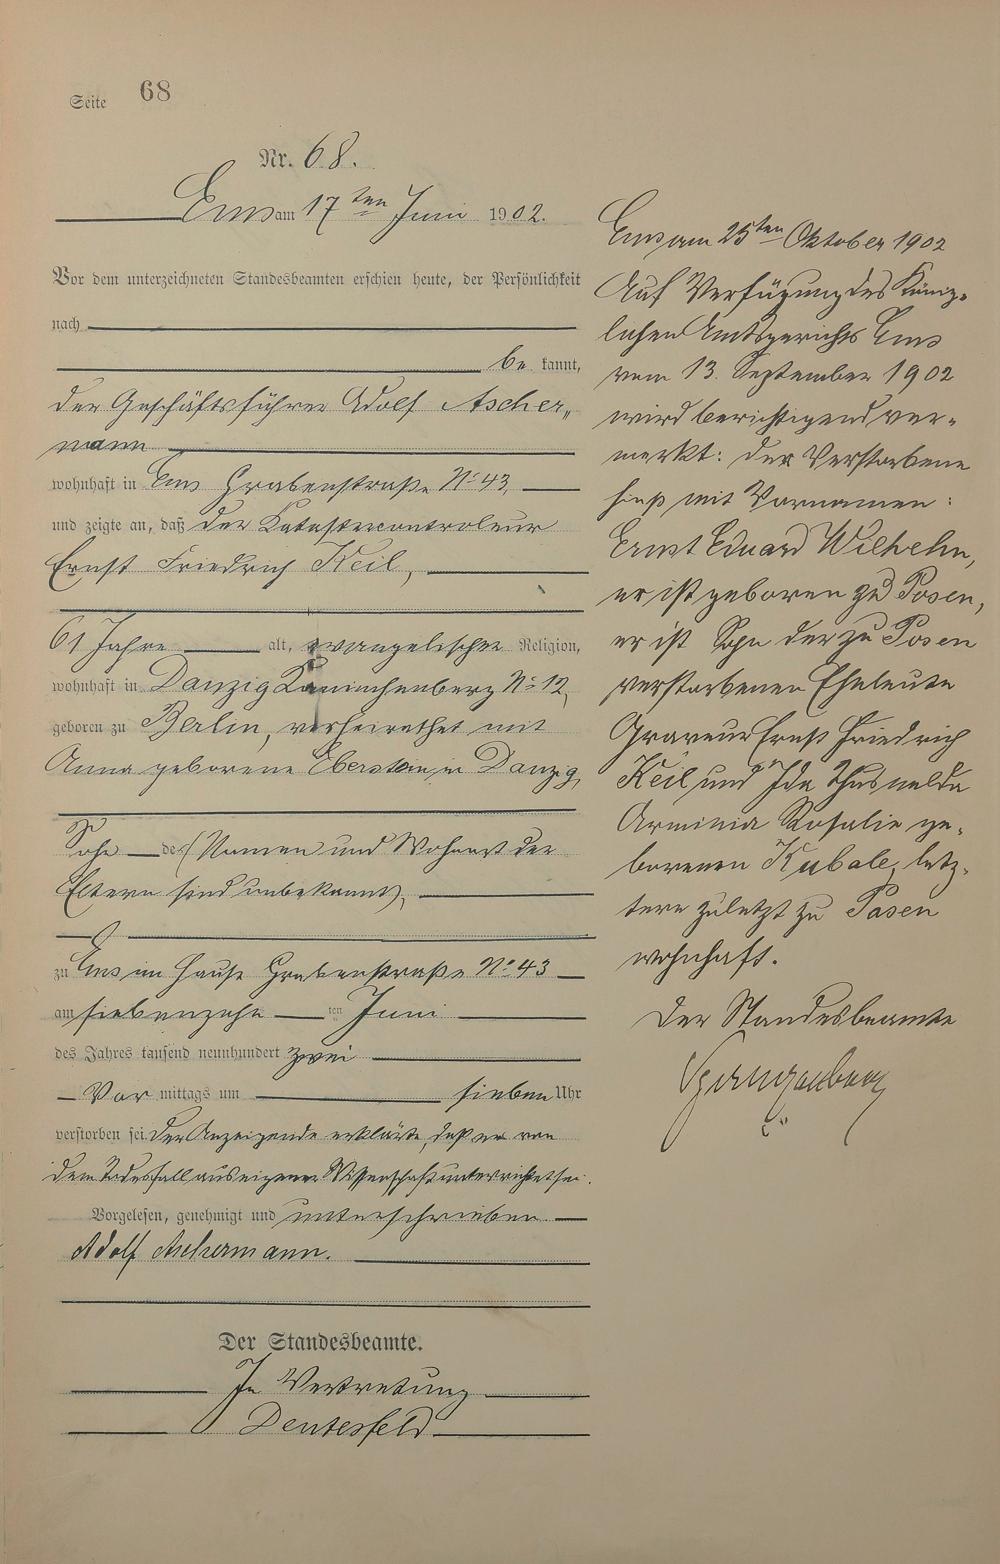 Seite 68
Nr. 68.
Ems am 17ten Juni 1902.
Vor dem unterzeichneten Standesbeamten erschien heute, der Persönlichkeit
nach
be kannt,
der Geschäftsführer Adolf Ascher„
mann
wohnhaft in Ems Grabenstraße No 43,
und zeigte an, daß der Katastercontroleur
Ernst Friedrich Keil,
61 Jahre alt, evangelischer Religion,
wohnhaft in Danzig Kaninchenberg No 12,
geboren zu Berlin, verheirathet mit
Anna geborene Eberstein in Danzig,
Sohn des (Namen und Wohnort der
Eltern sind unbekannt),
zu Ems im Hause Grabenstraße No 43
am siebenzehn ten Juni
des Jahres tausend neunhundert zwei
Vor mittags um sieben Uhr
verstorben sei. Der Anzeigende erklärte, daß er von
dem Todesfall aus eigener Wissenschaft unterrichtet sei.
Vorgelesen, genehmigt und unterschrieben
Adolf Aschermann.
Der Standesbeamte.
In Vertretung
Deutesfeld
Ems am 25ten Oktober 1902
Auf Verfügung des König-
lichen Amtsgerichts Ems
vom 13. September 1902
wird berichtigend ver-
merkt: der Verstorbene
hieß mit Vornamen:
Ernst Eduard Wilhelm,
er ist geboren zu Posen,
er ist Sohn der zu Posen
verstorbenen Eheleute
Graveur Ernst Friedrich
Keil und Ida Thusnelda
Arminia Rosalie ge-
borenen Kubale, letz-
tere zuletzt zu Posen
wohnhaft.
Der Standesbeamte